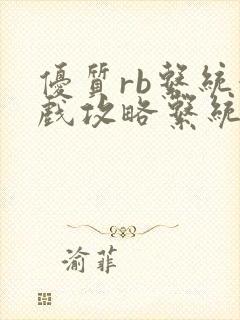 優質rb繫統
戲攻略繫統
渝菲